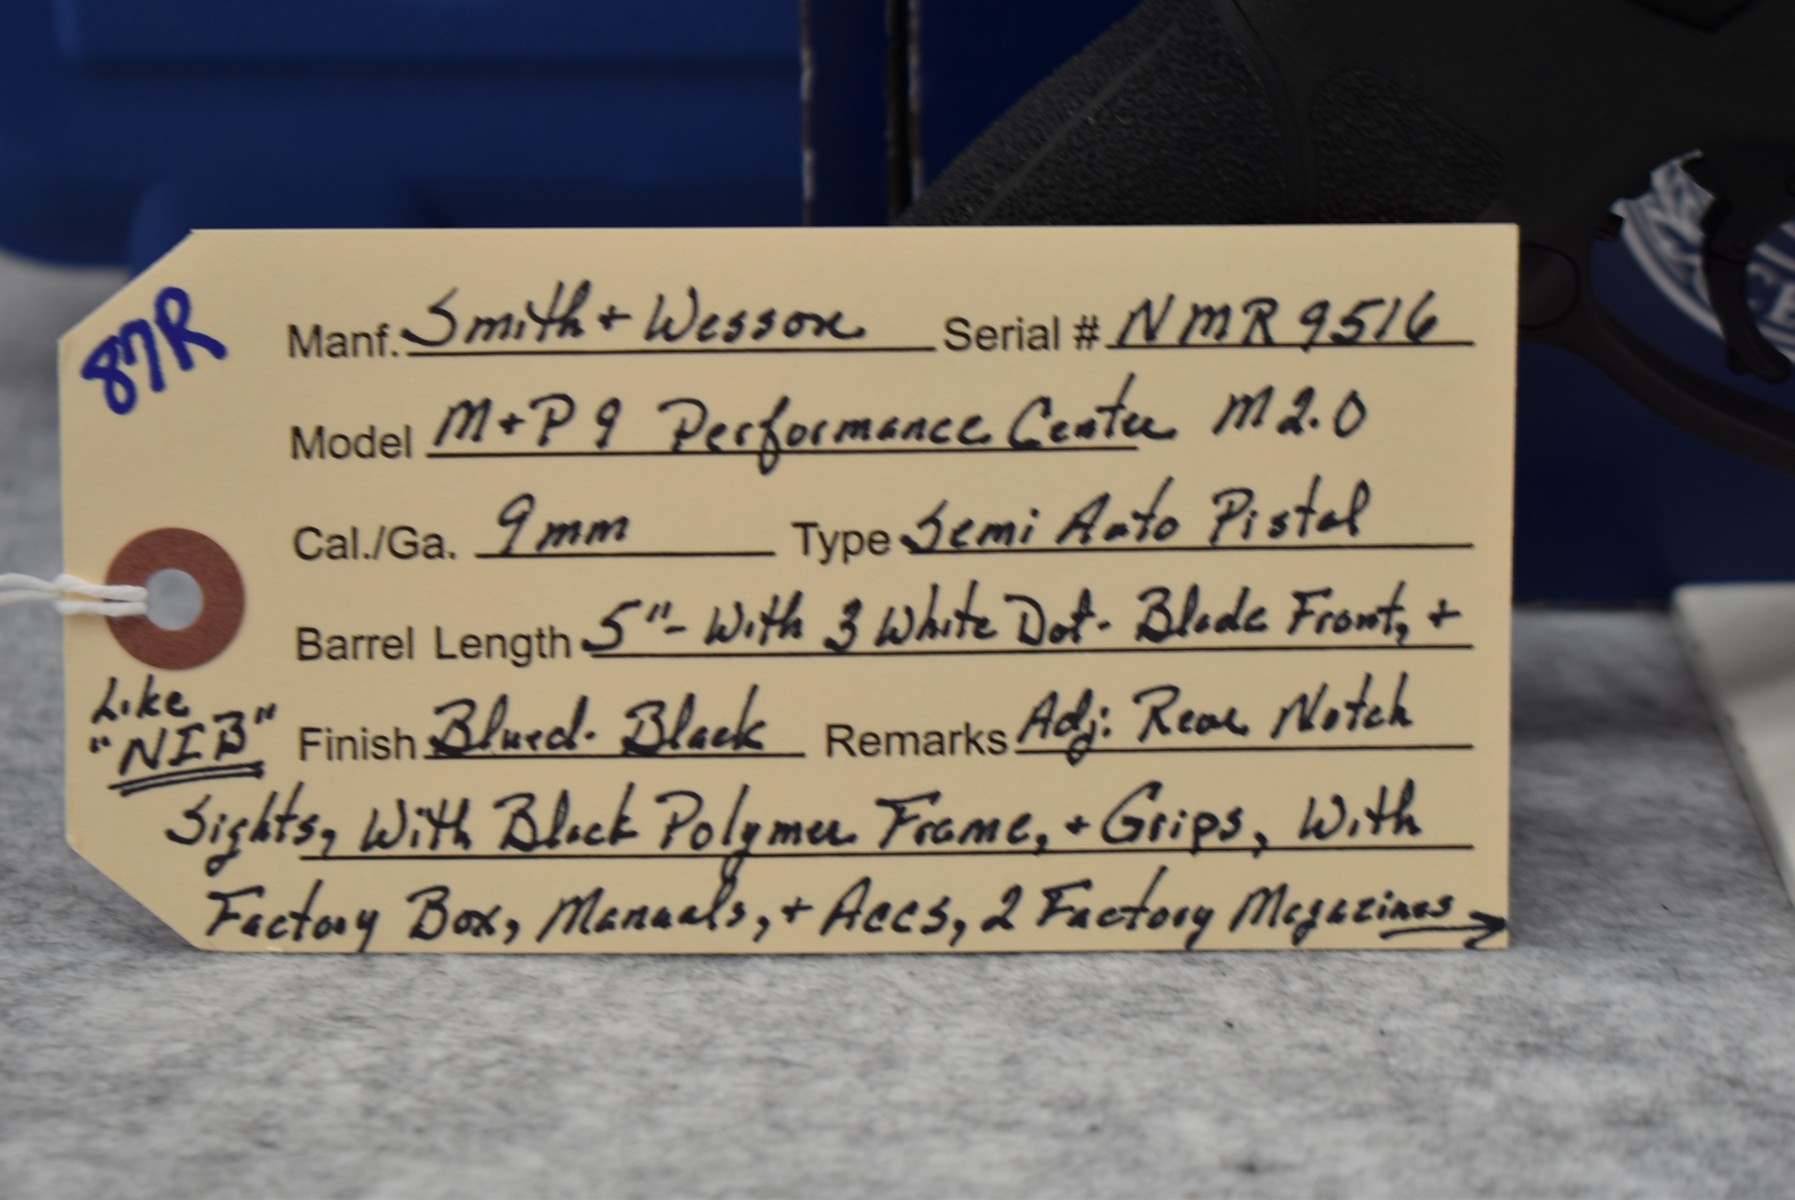 87R
Manf. Smith + Wesson Serial # NMR9516
Model M+P 9 Performance Center M2.0
Cal./Ga. 9mm Type Semi Auto Pistol
Barrel Length 5"- With 3 White Dot- Blade Front, +
Like
"NIB"
Finish Blued- Black Remarks Adj: Rear Notch
Sights, With Black Polymer Frame, + Grips, With
Factory Box, Manuals, + Accs, 2 Factory Magazines →